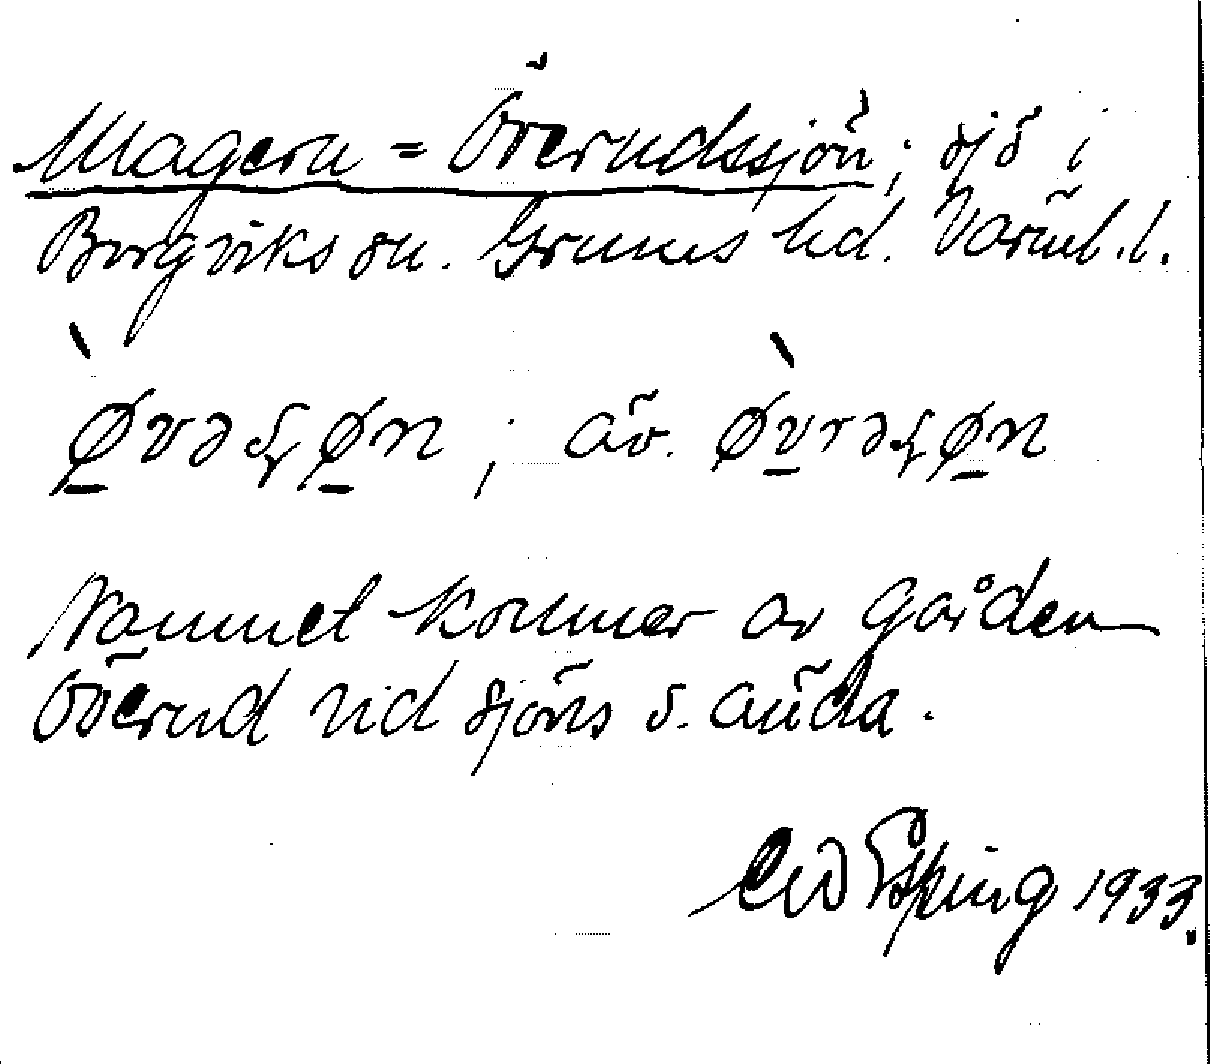 Magern = Överudssjön; sjö i
Borgviks sn. Grums hd. Värml. l.
Namnet kommer av gården
Överud vid sjöns s. ända.
Esping 1933.